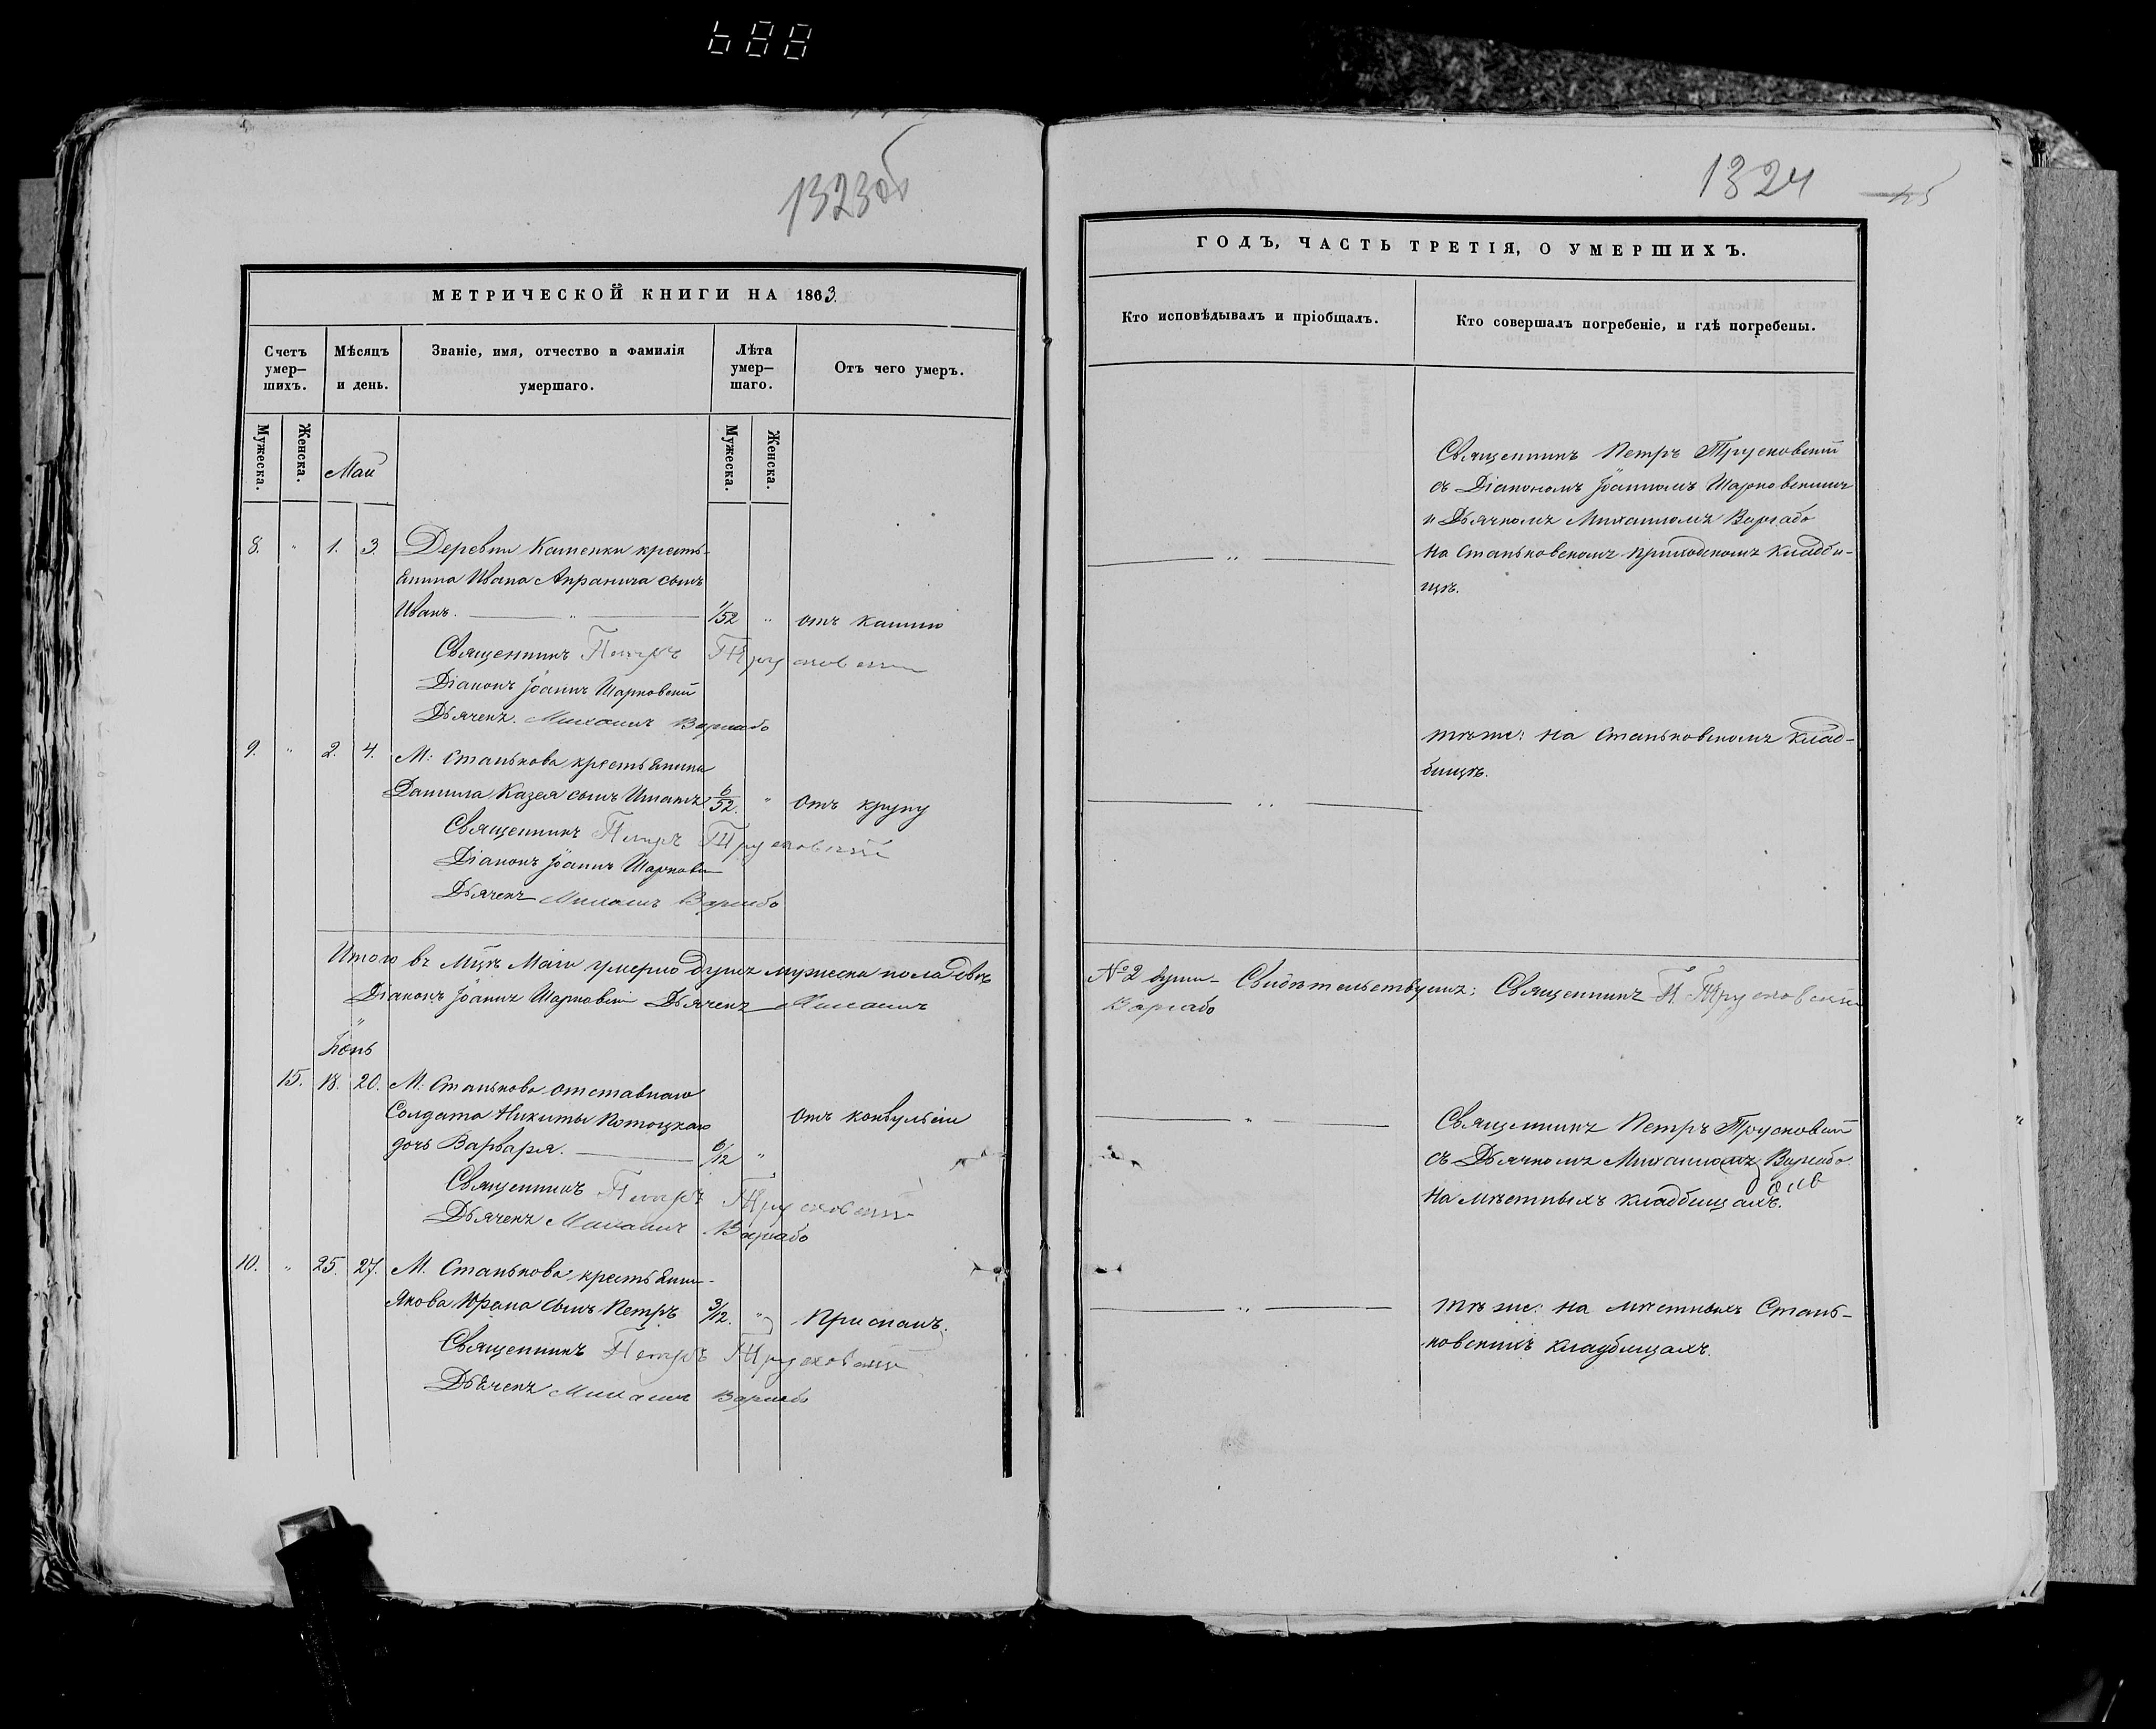 688
1323об
МЕТРИЧЕСКОЙ КНИГИ НА 1863.
Счетъ умер–шихъ.
Мѣсяцъ и день.
Званіе, имя, отчество и фамилія умершаго.
Лѣта умер–шаго.
Отъ чего умеръ.
Мужеска.
Женска.
Май
Мужеска.
Женска.
8. " 1. 3. Деревни Каменки кресть-
янина Ивана Апранича сынъ
Иванъ. " 1/52 " отъ кашлю
Священникъ Петръ Трусковскій
Діаконъ Іоаннъ Шарковскій
Дьячекъ Михаилъ
9. " 2. 4. М: Станькова крестьянина
Данила Казея сынъ Игнатъ 6/52. " Отъ крупу
Священникъ Петръ Трусковскій
Діаконъ Іоаннъ
Дьячекъ Михаилъ
Итого въ Мцѣ Маіи умерло душъ мужеска пола двѣ
Діаконъ Іоаннъ Шарковскій Дьячекъ Михаилъ
"
Іюнь
15. 18. 20. М. Станькова отставнаго
Солдата Никиты Потоцкаго отъ конвульсіи
дочь Варвара. /12 "
Священникъ Петръ Трусковскій
Дьячекъ Михаилъ
10. " 25. 27. М. Станькова, крестьянина
Якова сынъ Петръ 3/12. " Приспанъ.
Священникъ Петръ Трусковскій
Дьячекъ Михаилъ
1324
ГОДЪ, ЧАСТЬ ТРЕТІЯ, О УМЕРШИХЪ.
Кто исповѣдывалъ и пріобщалъ.
Кто совершалъ погребеніе, и гдѣ погребены.
Священникъ Петръ Трусковскій
съ Діакономъ Іоанномъ Шарковскимъ
и Дьячкомъ Михаиломъ
"
на Станьковскомъ приходскомъ кладби-
щѣ.
тѣже: на Станьковскомъ клад-
бищѣ.
"
№ 2 души - Свидѣтельствуютъ: Священникъ П. Трусковскій
"
Священникъ Петръ Трусковскій
съ Дьячкомъ Михаиломъ
на мѣстныхъ кладбищахъ.
"
тѣ же: на мѣстныхъ Стань-
ковскихъ кладбищахъ.